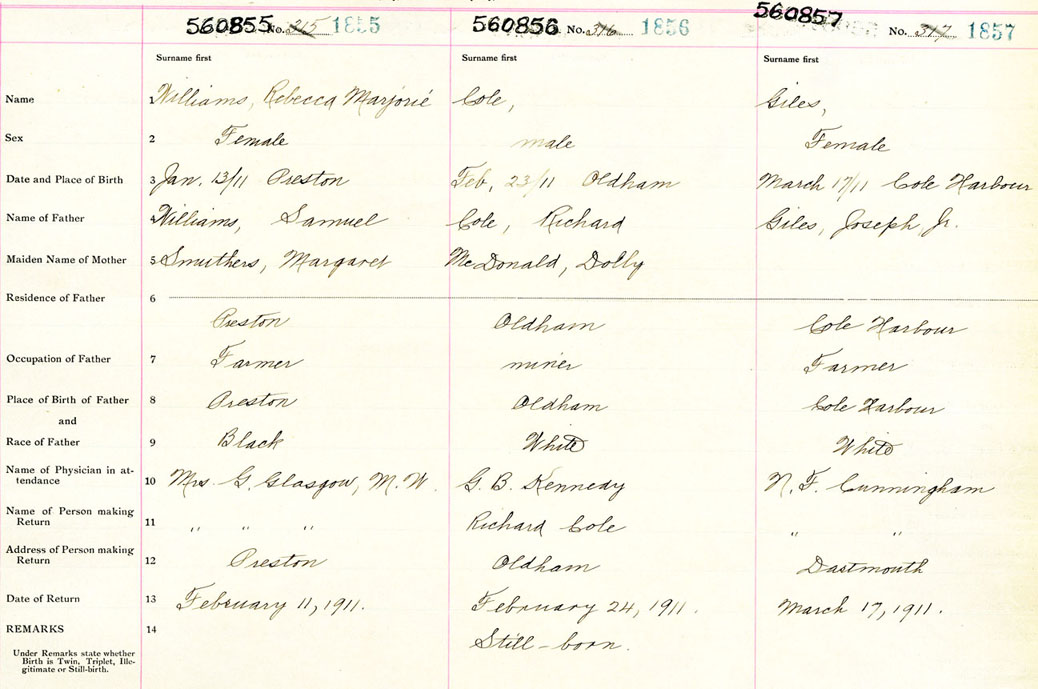 560855 No. 315 1855 560856 No. 316 1856 560857 No. 317 1857
Surname first Surname first Surname first
Name 1 Williams, Rebecca Marjorie Cole, Giles,
Sex 2 Female male Female
Date and Place of Birth 3 Jan. 13/11 Preston Feb, 23/11 Oldham March 17/11 Cole Harbour
Name of Father 4 Williams, Samuel Cole, Richard Giles, Joseph, Jr.
Maiden Name of Mother 5 Smithers, Margaret McDonald, Dolly
Residence of Father 6
Preston Oldham Cole Harbour
Occupation of Father 7 Farmer miner Farmer
Place of Birth of Father 8 Preston Oldham Cole Harbour
and
Race of Father 9 Black White White
Name of Physician in at-
tendance 10 Mrs. G. Glasgow, M.W. G. B. Kennedy N. F. Cunningham
Name of Person making
Return 11 " " " Richard Cole " "
Address of Person making
Return 12 Preston Oldham Dartmouth
Date of Return 13 February 11, 1911. February 24, 1911. March 17, 1911.
REMARKS 14 Still-born.
Under Remarks state whether
Birth is Twin, Triplet, Ille-
gitimate or Still-birth.